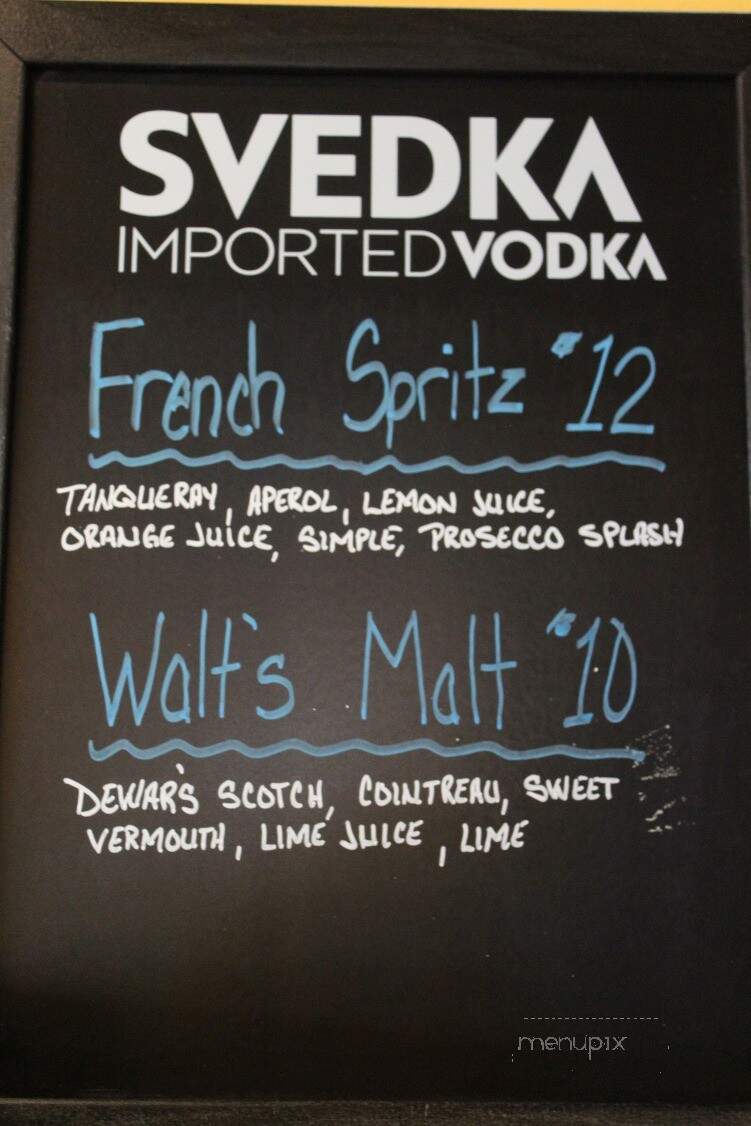 SVEDKA
IMPORTED VODKA
French Spritz $12
TANQUERAY, APEROL, LEMON JUICE,
ORANGE JUICE, SIMPLE, PROSECCO SPLASH
Walt's Malt $10
DEWAR'S SCOTCH, COINTREAU, SWEET
VERMOUTH, LIME JUICE, LIME
menupix